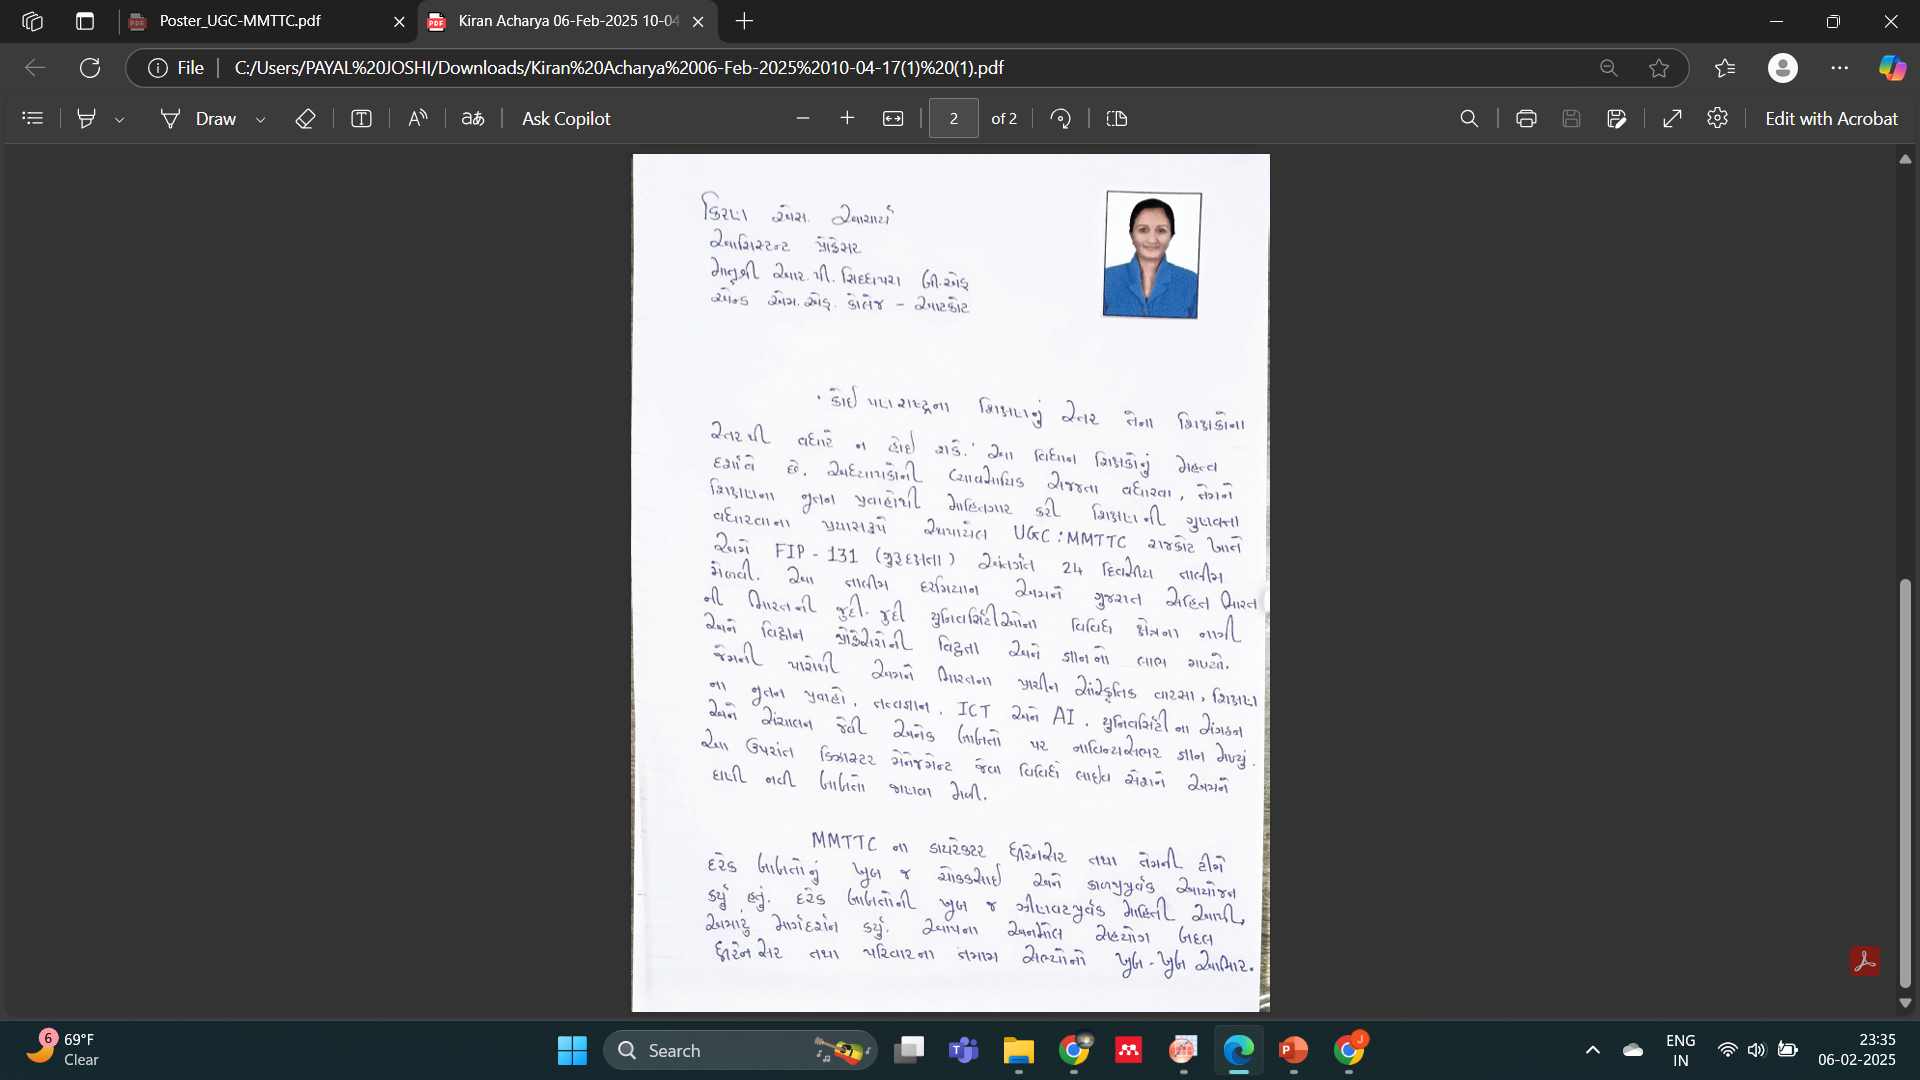 Poster_UGC-MMTTC.pdf
Kiran Acharya 06-Feb-2025 10-04
File
C:/Users/PAYAL%20JOSHI/Downloads/Kiran%20Acharya%2006-Feb-2025%2010-04-17(1)%20(1).pdf
Draw
Ask Copilot
2 of 2
Edit with Acrobat
કિરણ એસ. આચાર્ય
આસિસ્ટન્ટ પ્રોફેસર
માતૃશ્રી આર.પી. સિદ્દપરા બી.એડ્
એન્ડ એમ.એડ્. કોલેજ - આટકોટ
'કોઈ પણ રાષ્ટ્રના શિક્ષણનું સ્તર તેના શિક્ષકોના
સ્તરથી વધારે ન હોઈ શકે.' આ વિધાન શિક્ષકોનું મહત્વ
દર્શાવે છે. અધ્યાપકોની વ્યાવસાયિક સજ્જતા વધારવા, તેમને
શિક્ષણના નૂતન પ્રવાહોથી માહિતગાર કરી શિક્ષણની ગુણવત્તા
વધારવાના પ્રયાસરૂપે UGC:MMTTC રાજકોટ ખાતે
અમે FIP - 131 (ગુરૂદક્ષતા) અંતર્ગત 24 દિવસીય તાલીમ
મેળવી. આ તાલીમ દરમિયાન અમને ગુજરાત સહિત ભારત
ની ભારતની જુદી-જુદી યુનિવર્સિટીઓના વિવિધ ક્ષેત્રના નામી
અને વિદ્વાન પ્રોફેસરોની વિદ્વતા અને જ્ઞાનનો લાભ મળ્યો.
જેમની પાસેથી અમને ભારતના પ્રાચીન સાંસ્કૃતિક વારસા, શિક્ષણ
ના નૂતન પ્રવાહો, તત્વજ્ઞાન, ICT અને AI, યુનિવર્સિટીના સંગઠન
અને સંચાલન જેવી અનેક બાબતો પર નાવિન્યસભર જ્ઞાન મળ્યું.
આ ઉપરાંત ડિઝાસ્ટર મેનેજમેન્ટ જેવા વિવિધ લાઇવ સેશને અમને
ઘણી નવી બાબતો જાણવા મળી.
MMTTC ના ડાયરેક્ટર ધીરેનસર તથા તેમની ટીમે
દરેક બાબતોનું ખૂબ જ ચોક્કસાઈ અને કાળજીપૂર્વક આયોજન
કર્યું હતું. દરેક બાબતોની ખૂબ જ ઝીણવટપૂર્વક માહિતી આપી,
અમારું માર્ગદર્શન કર્યું. આપના અનમોલ સહયોગ બદલ
ધીરેન સર તથા પરિવારના તમામ સભ્યોનો ખૂબ-ખૂબ આભાર.
6
69°F
Clear
Search
ENG
IN
23:35
06-02-2025